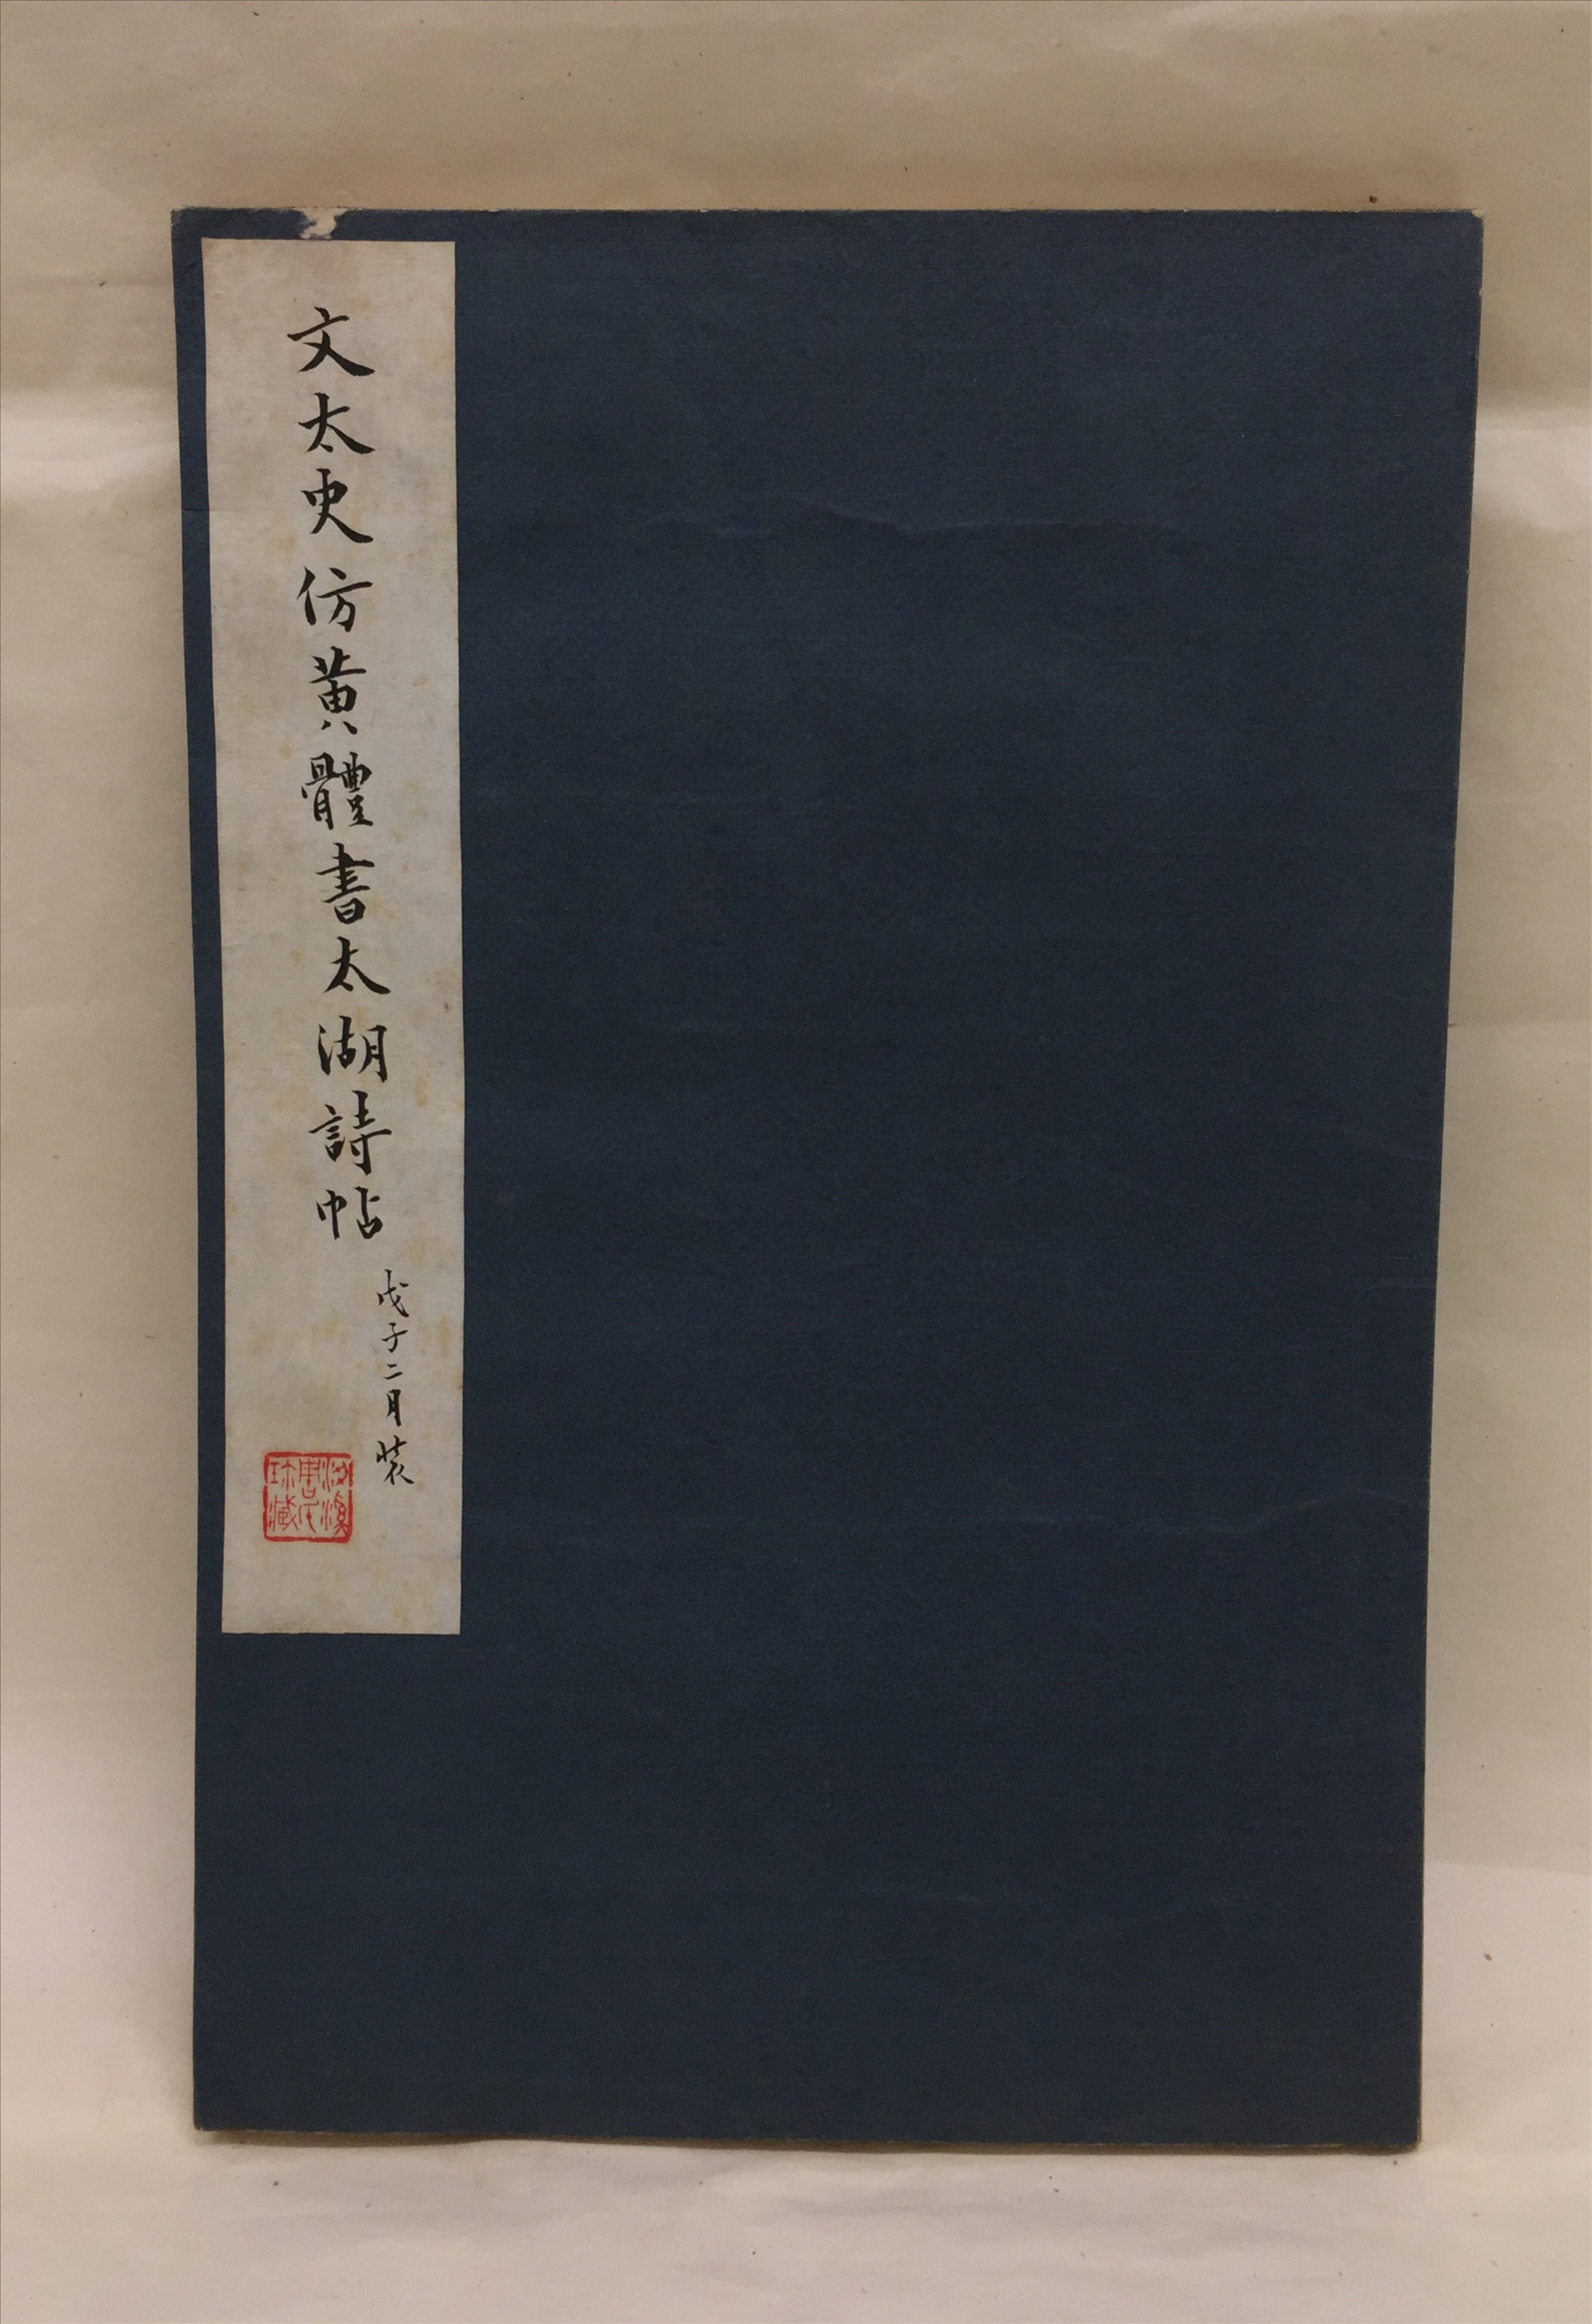 文太史仿黄體書太湖詩帖
戊子二月裝